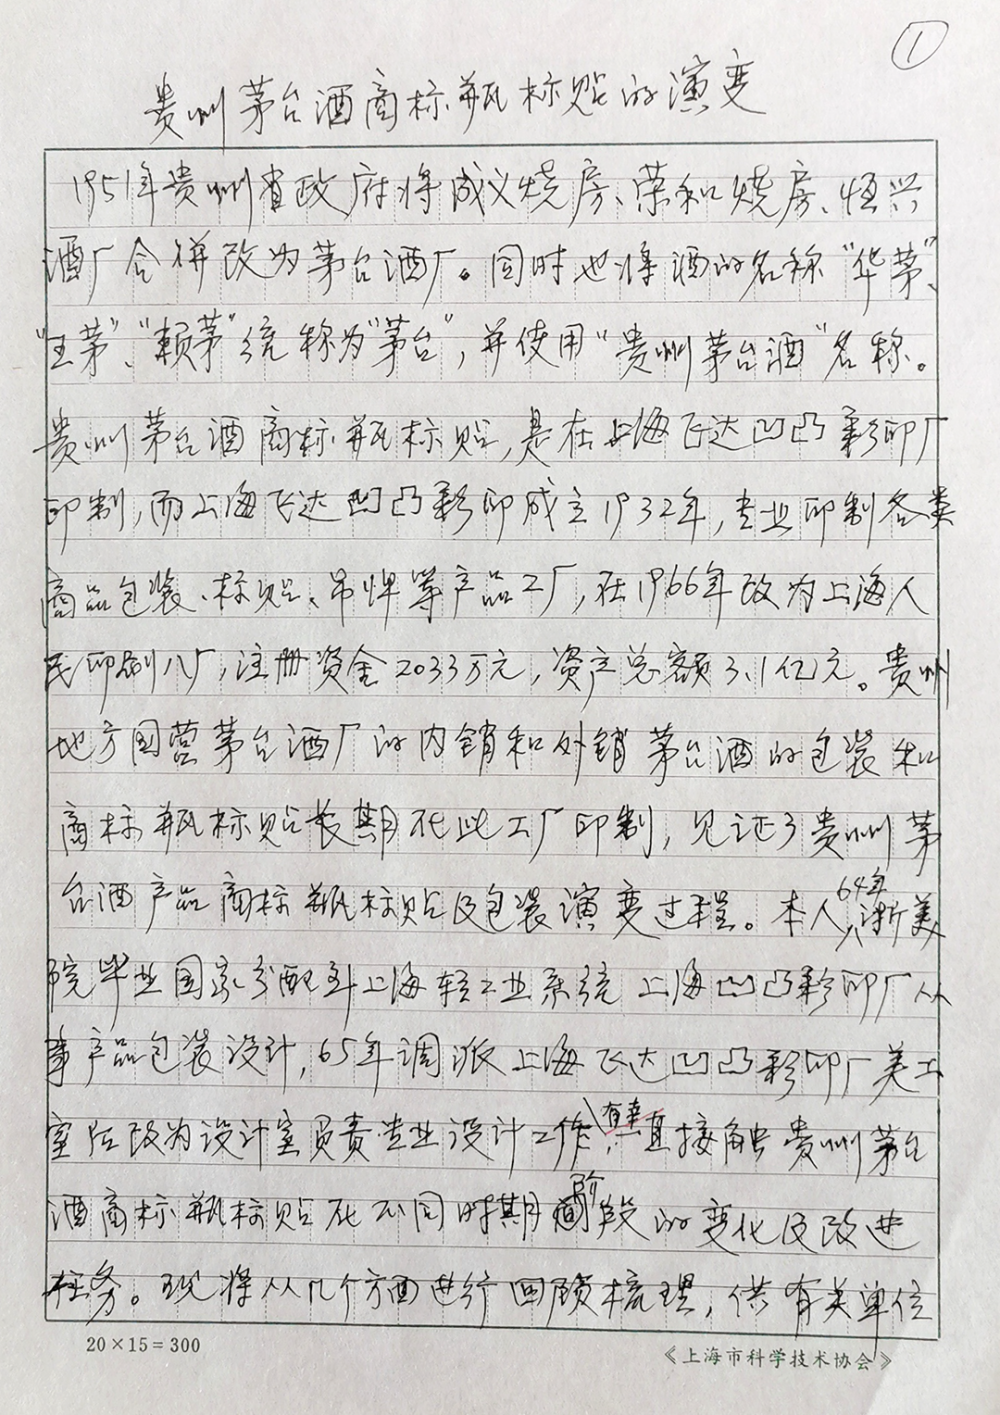 ①
贵州茅台酒商标瓶标贴的演变
1951年贵州省政府将成义烧房、荣和烧房、恒兴
酒厂合併改为茅台酒厂。同时也将酒的名称“华茅”、
“王茅”、“赖茅”统称为“茅台”，并使用“贵州茅台酒”名称。
贵州茅台酒商标瓶标贴，是在上海飞达凹凸彩印厂
印制，而上海飞达凹凸彩印成立1932年，专业印制各类
商品包装、标贴、吊牌等产品工厂，在1966年改为上海人
民印刷八厂，注册资金2033万元，资产总额3.1亿元。贵州
地方国营茅台酒厂的内销和外销茅台酒的包装和
商标瓶标贴长期在此工厂印制，见证了贵州茅
台酒产品商标瓶标贴及包装演变过程。本人64年浙美
院毕业国家分配到上海轻工业系统上海凹凸彩印厂从
事产品包装设计，65年调派上海飞达凹凸彩印厂美工
室后改为设计室负责专业设计工作，有幸直接触贵州茅台
酒商标瓶标贴在不同时期阶段的变化及改进
任务。现将从几个方面进行回顾梳理，供有关单位
20×15=300
《上海市科学技术协会》